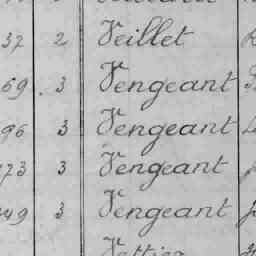 37 2 Veillet
69 3 Vengeant
96 3 Vengeant
73 3 Vengeant
49 3 Vengeant